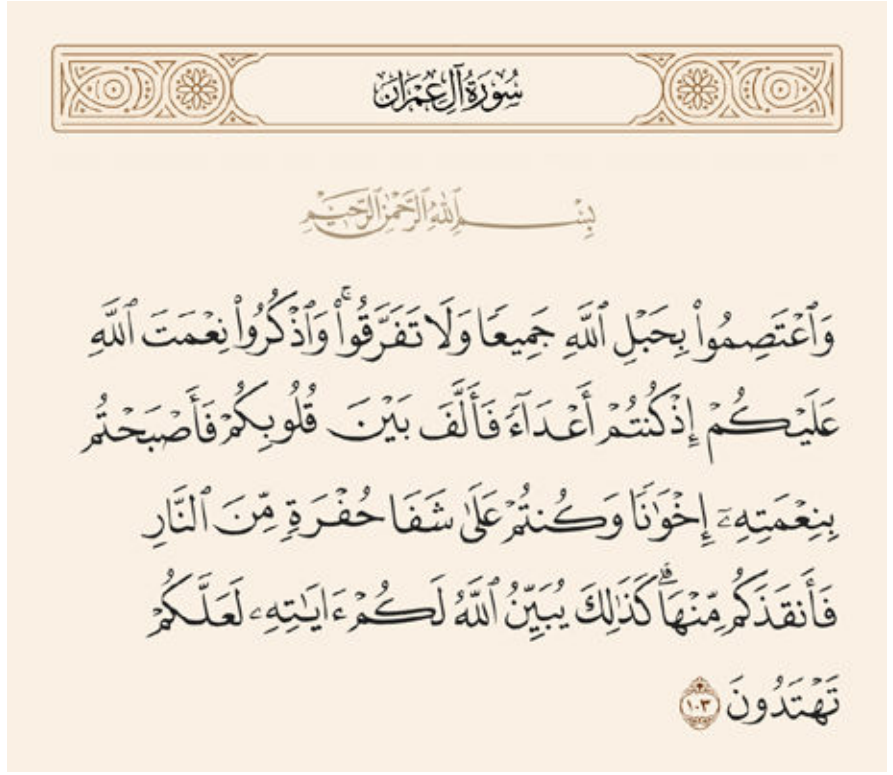 سُورَةُ آلِ عِمْرَانَ
بِسْمِ ٱللَّهِ ٱلرَّحْمَٰنِ ٱلرَّحِيمِ
وَٱعْتَصِمُوا۟ بِحَبْلِ ٱللَّهِ جَمِيعًا وَلَا تَفَرَّقُوا۟ ۚ وَٱذْكُرُوا۟ نِعْمَتَ ٱللَّهِ
عَلَيْكُمْ إِذْ كُنتُمْ أَعْدَآءً فَأَلَّفَ بَيْنَ قُلُوبِكُمْ فَأَصْبَحْتُم
بِنِعْمَتِهِۦٓ إِخْوَٰنًا وَكُنتُمْ عَلَىٰ شَفَا حُفْرَةٍ مِّنَ ٱلنَّارِ
فَأَنقَذَكُم مِّنْهَا ۗ كَذَٰلِكَ يُبَيِّنُ ٱللَّهُ لَكُمْ ءَايَٰتِهِۦ لَعَلَّكُمْ
تَهْتَدُونَ ١٠٣